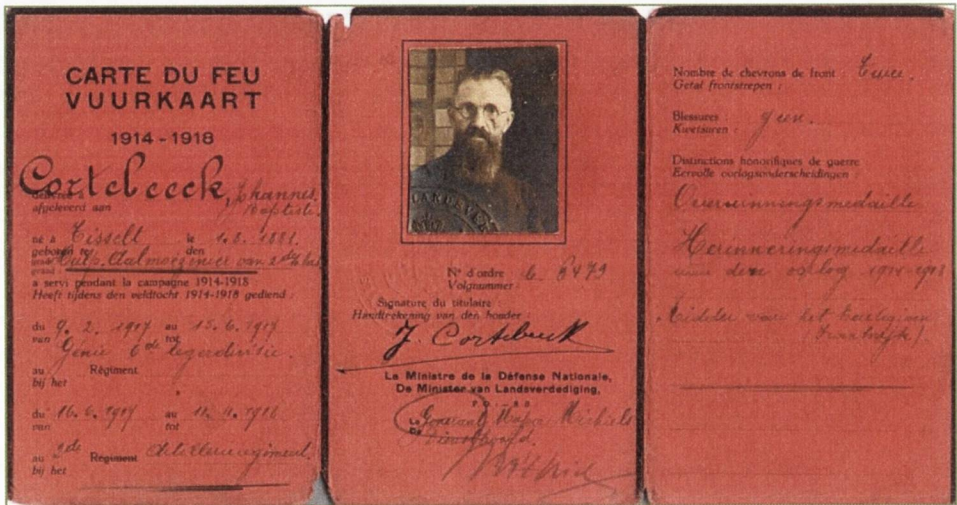 CARTE DU FEU
VUURKAART
1914 - 1918
Cortebeeck Johannes
délivrée à Baptist.
afgeleverd aan
né à Tisselt le 1.8.1881.
geboren te den
Hulp. Aalmoezenier van 2de kl.
a servi pendant la campagne 1914-1918
Heeft tijdens den veldtocht 1914-1918 gediend :
du 9.2.1917 au 15.6.1917
van tot
Genie 6de legerdivisie.
au Régiment
bij het
du 16.6.1917 au 11.11.1918
van tot
au 2de Régiment Artillerieregiment
bij het
N° d'ordre 6479
Volgnummer :
Signature du titulaire :
Handteekening van den houder :
J. Cortebeeck
Le Ministre de la Défense Nationale,
De Minister van Landsverdediging,
Generaal Majoor Michiels
Nombre de chevrons de front : Twee.
Getal frontstrepen :
Blessures geen.
Kwetsuren :
Distinctions honorifiques de guerre
Eervolle oorlogsonderscheidingen :
Overwinningsmedaille
Herinneringsmedaille
van den oorlog 1914-1918